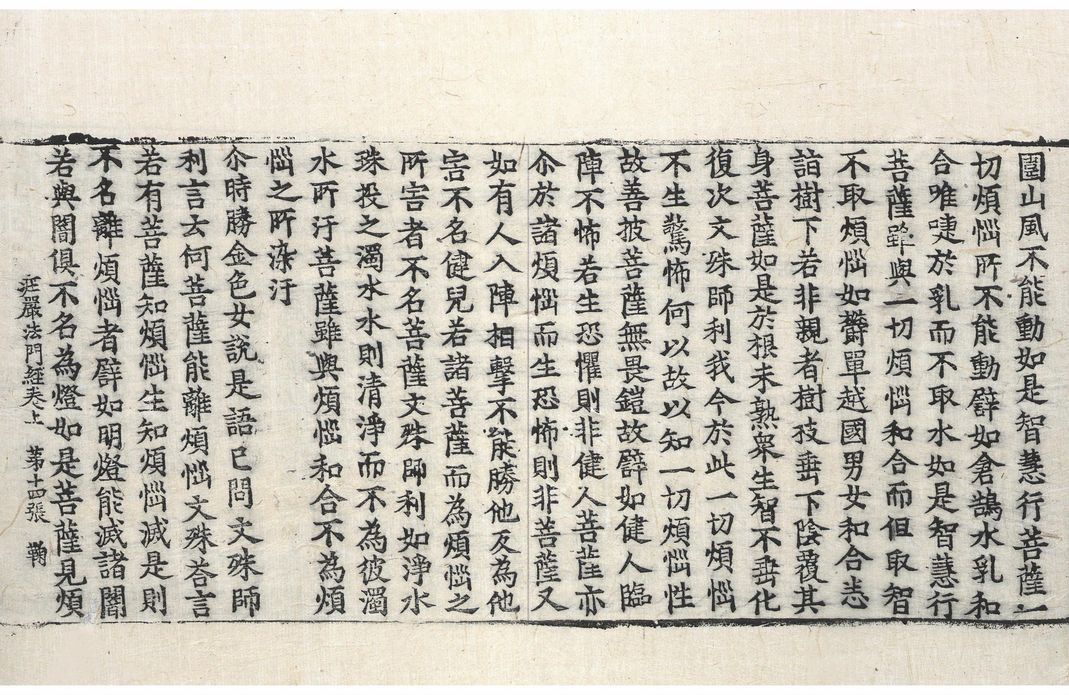 圍山風不能動如是智慧行菩薩一
切煩惱所不能動譬如倉鵠水乳和
合唯唼於乳而不取水如是智慧行
菩薩雖與一切煩惱和合而但取智
不取煩惱如欝單越國男女和合悉
詣樹下若非親者樹枝垂下陰覆其
身菩薩如是於根未熟衆生智不垂化
復次文殊師利我今於此一切煩惱
不生驚怖何以故以知一切煩惱性
故善披菩薩無畏鎧故譬如健人臨
陣不怖若生恐懼則非健人菩薩亦
尒於諸煩惱而生恐怖則非菩薩又
如有人入陣相擊不能勝他反為他
害不名健兒若諸菩薩而為煩惱之
所害者不名菩薩文殊師利如淨水
珠投之濁水水則清淨而不為彼濁
水所汙菩薩雖與煩惱和合不為煩
惱之所染汙
尒時勝金色女說是語已問文殊師
利言云何菩薩能離煩惱文殊荅言
若有菩薩知煩惱生知煩惱滅是則
不名離煩惱者譬如明燈能滅諸闇
若與闇俱不名為燈如是菩薩見煩
莊嚴法門經卷上 第十四張 鞠